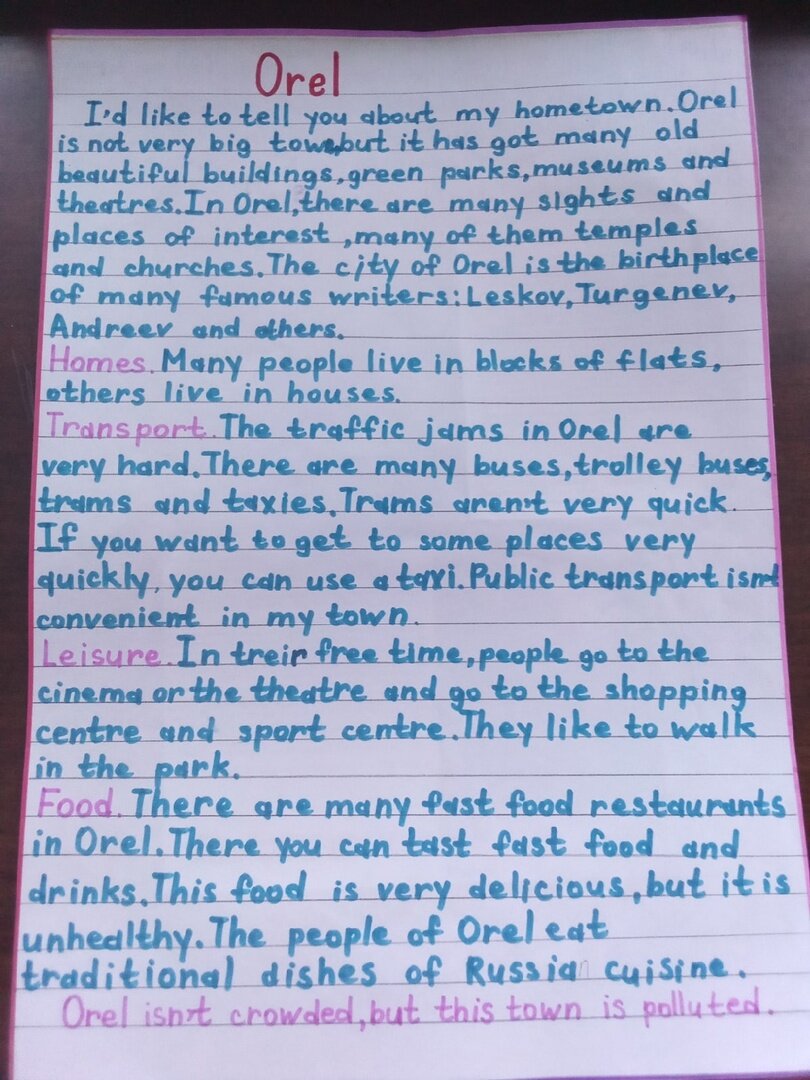 Orel
I'd like to tell you about my hometown.Orel
is not very big town,but it has got many old
beautiful buildings,green parks,museums and
theatres.In Orel,there are many sights and
places of interest ,many of them temples
and churches.The city of Orel is the birthplace
of many famous writers:Leskov,Turgenev,
Andreev and others.
Homes.Many people live in blocks of flats,
others live in houses.
Transport.The traffic jams in Orel are
very hard.There are many buses,trolley buses,
trams and taxies.Trams aren't very quick.
If you want to get to some places very
quickly, you can use a taxi.Public transport isn't
convenient in my town.
Leisure.In treir free time,people go to the
cinema or the theatre and go to the shopping
centre and sport centre.They like to walk
in the park.
Food.There are many fast food restaurants
in Orel.There you can tast fast food and
drinks.This food is very delicious,but it is
unhealthy.The people of Orel eat
traditional dishes of Russian cuisine.
Orel isn't crowded,but this town is polluted.